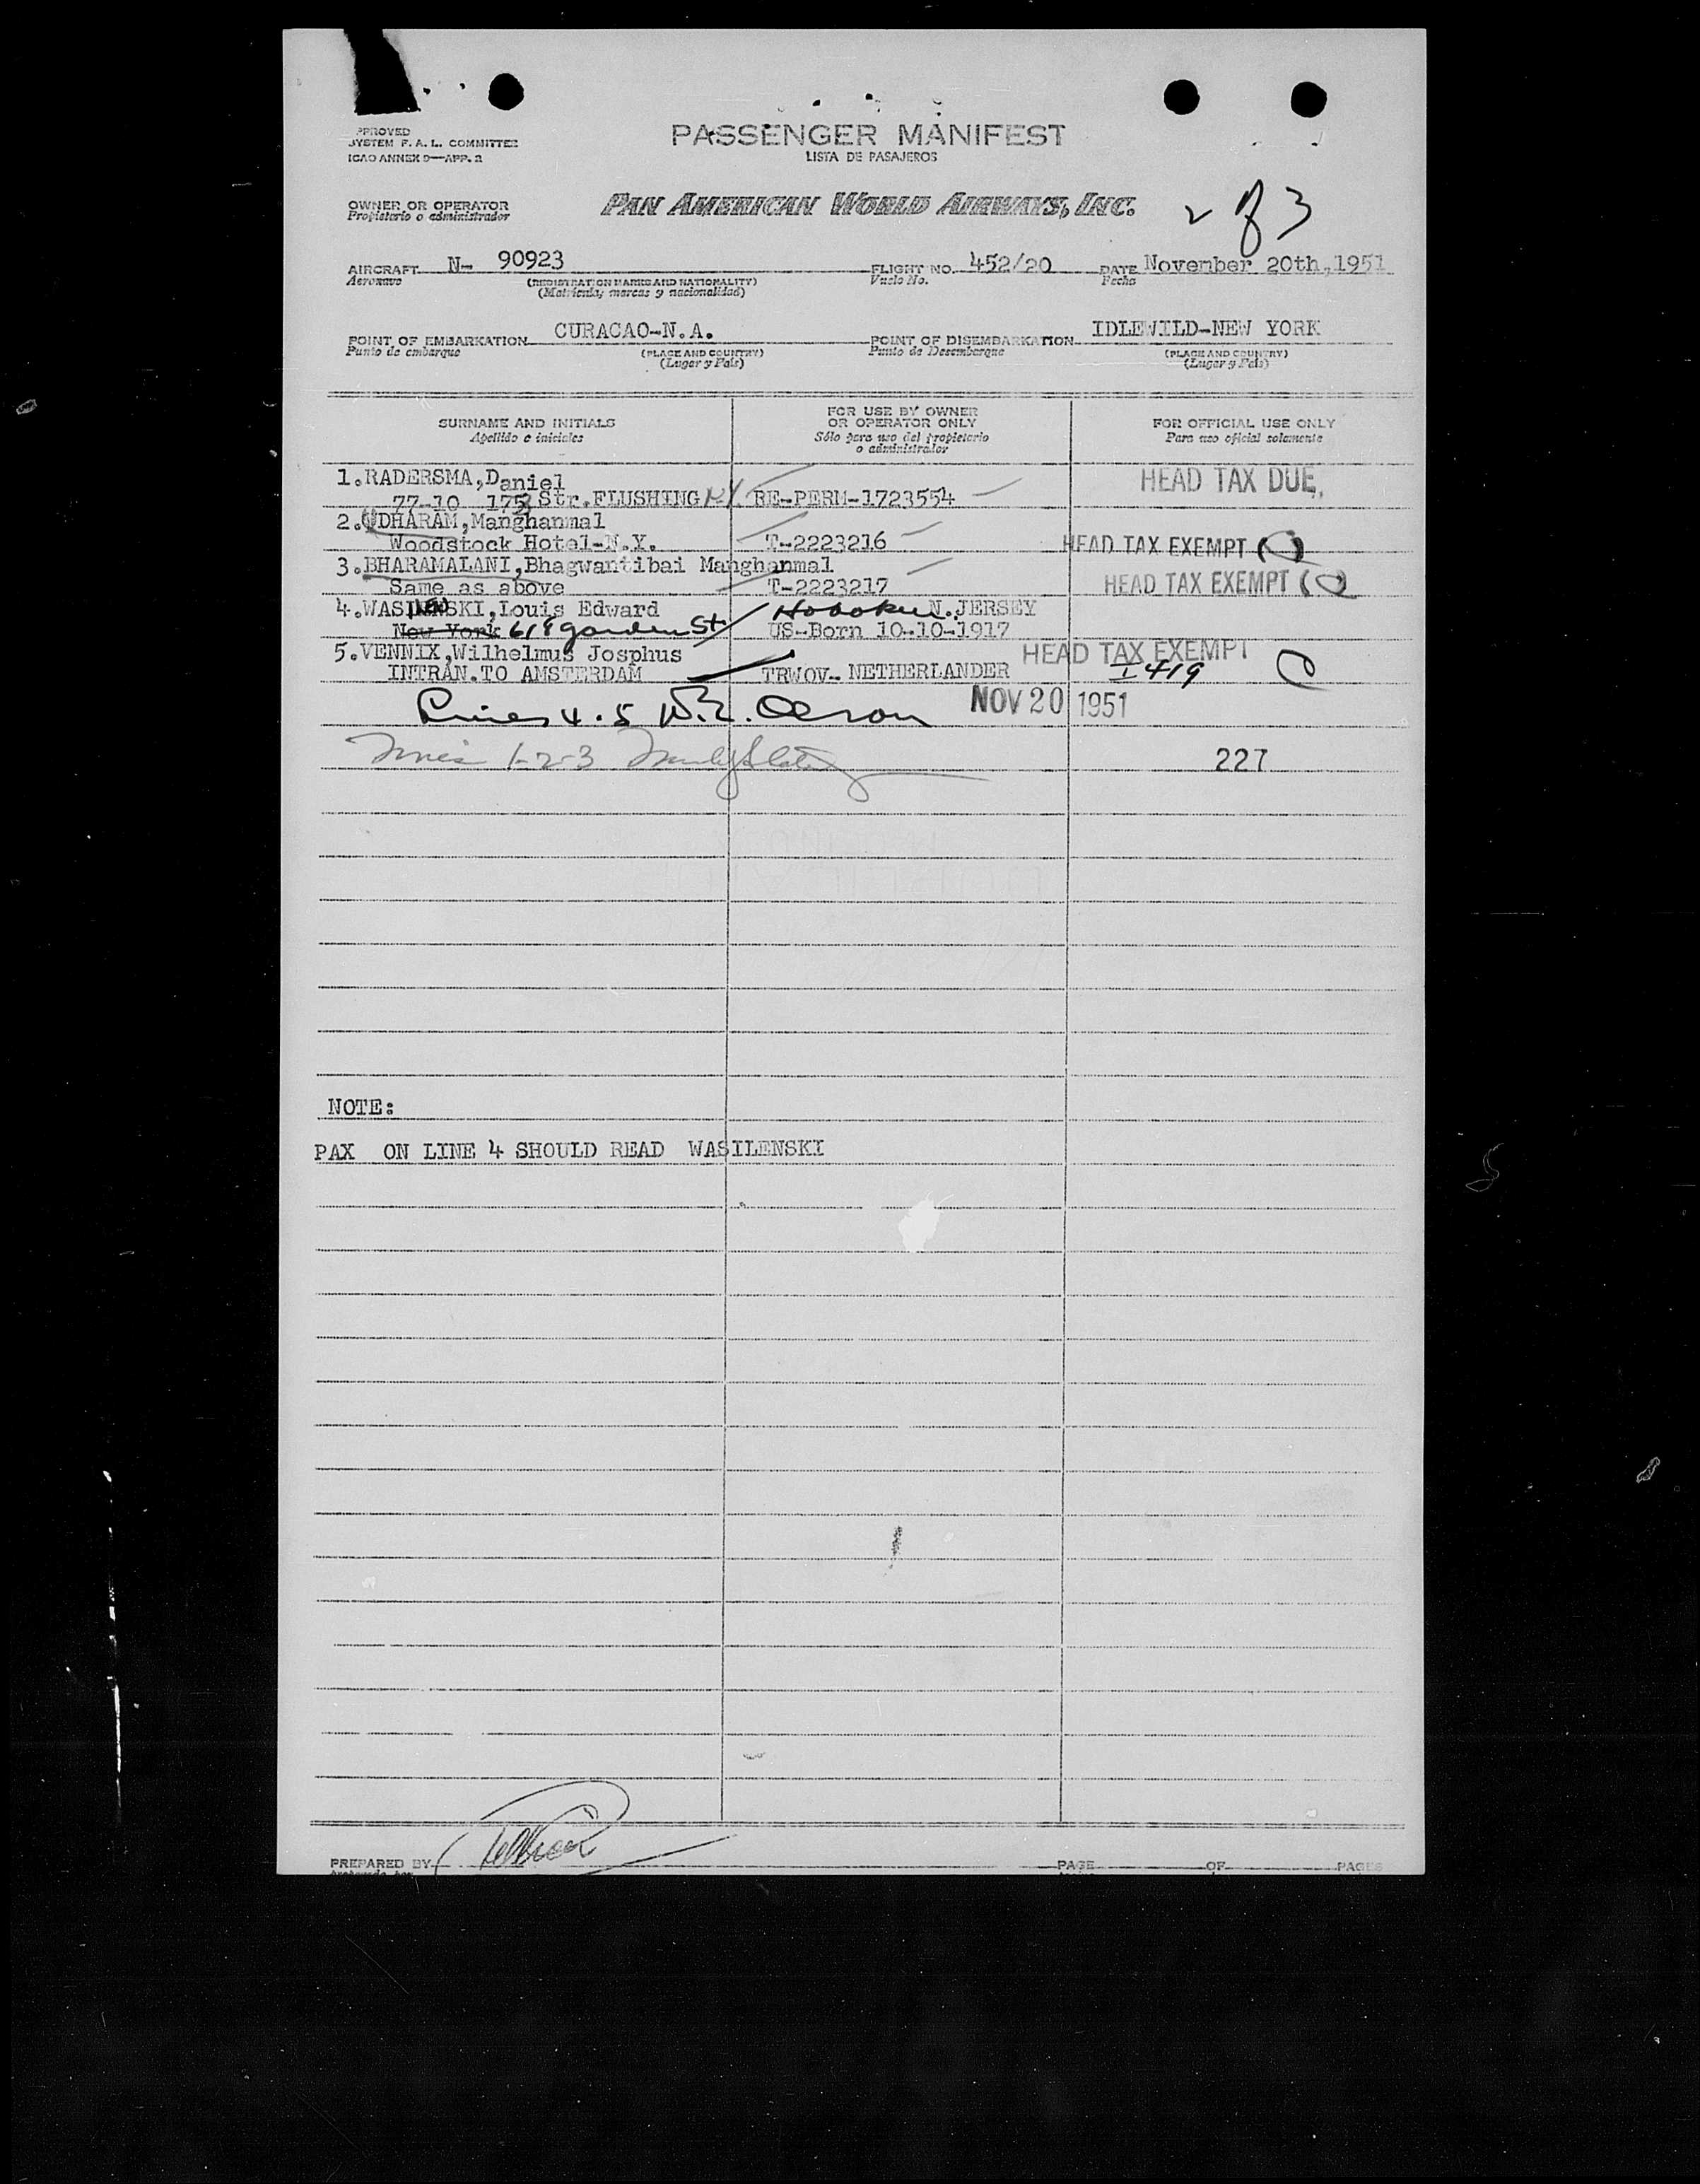 PPROVED
SYSTEM F. A. L. COMMITTEE
ICAO ANNEX 9—APP. 2
PASSENGER MANIFEST
LISTA DE PASAJEROS
OWNER OR OPERATOR
Propietario o administrador
PAN AMERICAN WORLD AIRWAYS, INC.
2 of 3
AIRCRAFT N- 90923 FLIGHT NO. 452/20 DATE November 20th,1951
Aeronave (REGISTRATION MARKS AND NATIONALITY) Vuelo No. Fecha
(Matrícula; marcas y nacionalidad)
POINT OF EMBARKATION CURACAO-N.A. POINT OF DISEMBARKATION IDLEWILD-NEW YORK
Punto de embarque (PLACE AND COUNTRY) Punto de Desembarque (PLACE AND COUNTRY)
(Lugar y País) (Lugar y País)
SURNAME AND INITIALS
Apellido e iniciales
FOR USE BY OWNER
OR OPERATOR ONLY
Sólo para uso del propietario
o administrador
FOR OFFICIAL USE ONLY
Para uso oficial solamente
1.RADERSMA,Daniel HEAD TAX DUE,
77-10 Str.FLUSHING N.Y. RE-PERM-1723554
2.UDHARAM,Manghanmal
Woodstock Hotel-N.Y. T-2223216 HEAD TAX EXEMPT
3.BHARAMALANI,Bhagwantibai Manghanmal
Same as above T-2223217 HEAD TAX EXEMPT
4.WASILENSKI,Louis Edward Hoboken N.JERSEY
New York 618 Garden St. US-Born 10-10-1917
5.VENNIX,Wilhelmus Josphus HEAD TAX EXEMPT
INTRAN.TO AMSTERDAM TRWOV-NETHERLANDER I 419
Lines 4.5 W.E. Olson NOV 20 1951
Lines 1-2-3 227
NOTE:
PAX ON LINE 4 SHOULD READ WASILENSKI
PREPARED BY PAGE OF PAGES